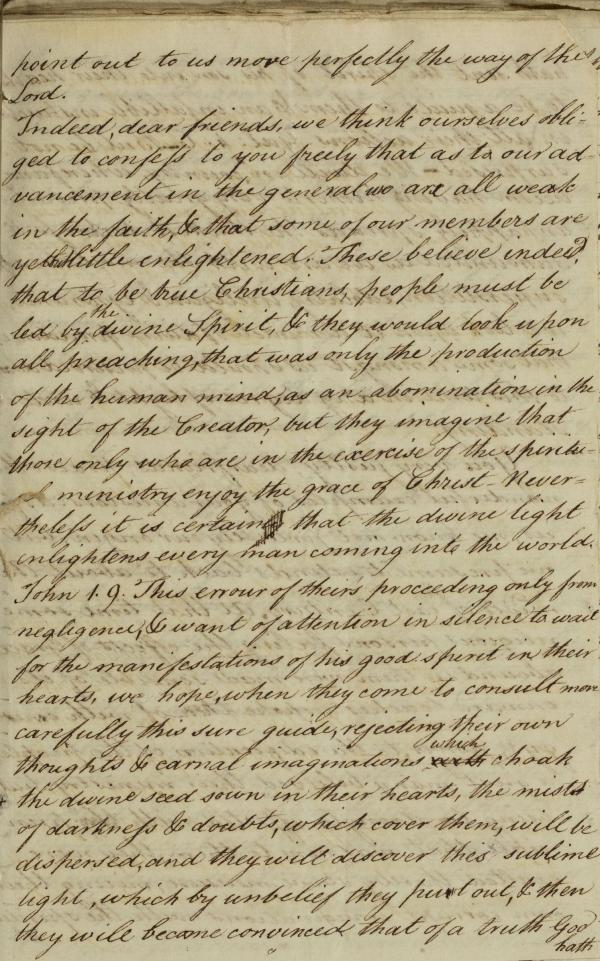 point out to us more perfectly the way of the
Lord.
Indeed, dear friends, we think ourselves obli-
ged to confess to you freely that as to our ad-
vancement in the general we are all weak
in the faith, & that some of our members are
yet but little enlightened. These believe indeed,
that to be true Christians, people must be
led by the divine Spirit, & they would look upon
all preaching, that was only the production
of the human mind, as an abomination in the
sight of the Creator, but they imagine that
those only who are in the exercise of the spiritu-
al ministry enjoy the grace of Christ - Never-
theless it is certain that the divine light
enlightens every man coming into the world.
John 1.9. This errour of theirs proceeding only from
negligence, & want of attention in silence to wait
for the manifestations of his good spirit in their
hearts, we hope, when they come to consult more
carefully this sure guide, rejecting their own
thoughts & carnal imaginations which choak
the divine seed sown in their hearts, the mists
of darkness & doubts, which cover them, will be
dispersed, and they will discover this sublime
light, which by unbelief they put out, & then
they will become convinced that of a truth God
hath